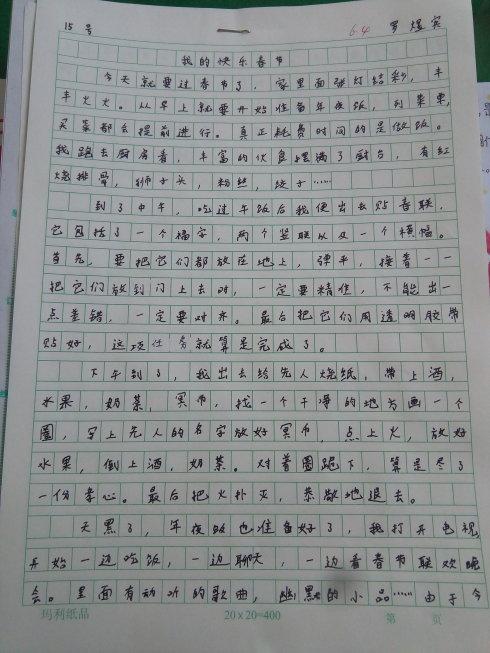 15号 6.4 罗煜宾
我的快乐春节
今天就要过春节了，家里面张灯结彩，丰
丰火火。从早上就要开始准备年夜饭，列菜单，
买菜都会提前进行。真正耗费时间的是做饭。
我跑去厨房看，丰富的伙食摆满了厨台，有红
烧排骨，狮子头，粉丝，饺子……
到了中午，吃过午饭后我便出去贴春联，
它包括了一个福字，两个竖联以及一个横幅。
首先，要把它们都放在地上，弹平，接着一一
把它们放到门上去时，一定要精准，不能出一
点差错，一定要对齐。最后把它们用透明胶带
贴好，这项任务就算是完成了。
下午到了，我出去给先人烧纸，带上酒，
水果，奶茶，冥币，找一个干净的地方画一个
圈，写上先人的名字放好冥币，点上火，放好
水果，倒上酒，奶茶。对着圈跪下，算是尽了
一份孝心。最后把火扑灭，恭敬地退去。
天黑了，年夜饭也准备好了，我打开电视
开始一边吃饭，一边聊天，一边看春节联欢晚
会。里面有动听的歌曲，幽默的小品……由于今
玛利纸品 20×20=400 第 页